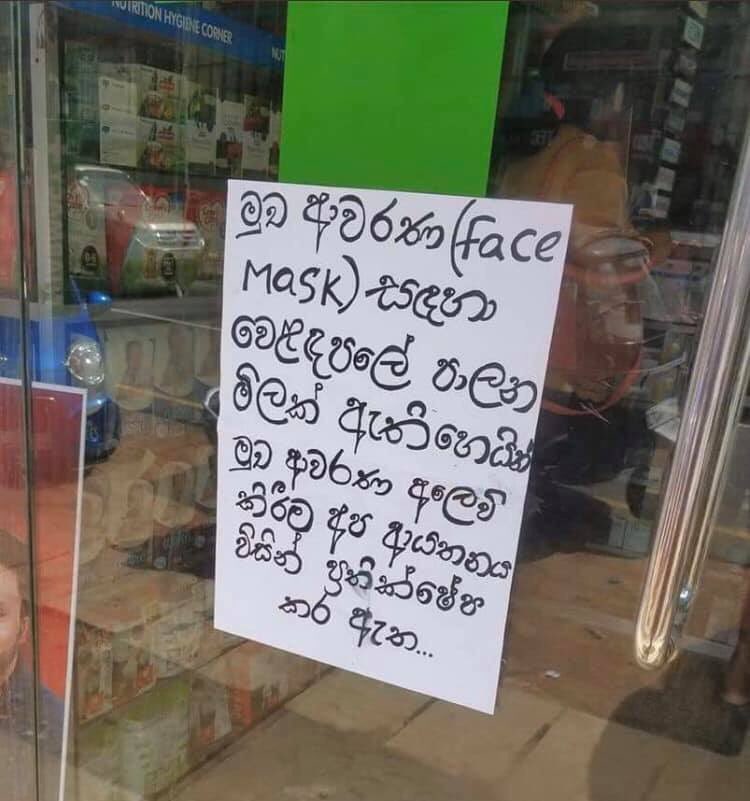 NUTRITION HYGIENE CORNER
NUT
මුව ආවරණ (face
Mask) සඳහා
වෙළඳපලේ පාලන
මිලක් ඇති හෙයින්
මුව ආවරණ අලෙවි
කිරීම අප ආයතනය
විසින් ප්‍රතික්ෂේප
කර ඇත...